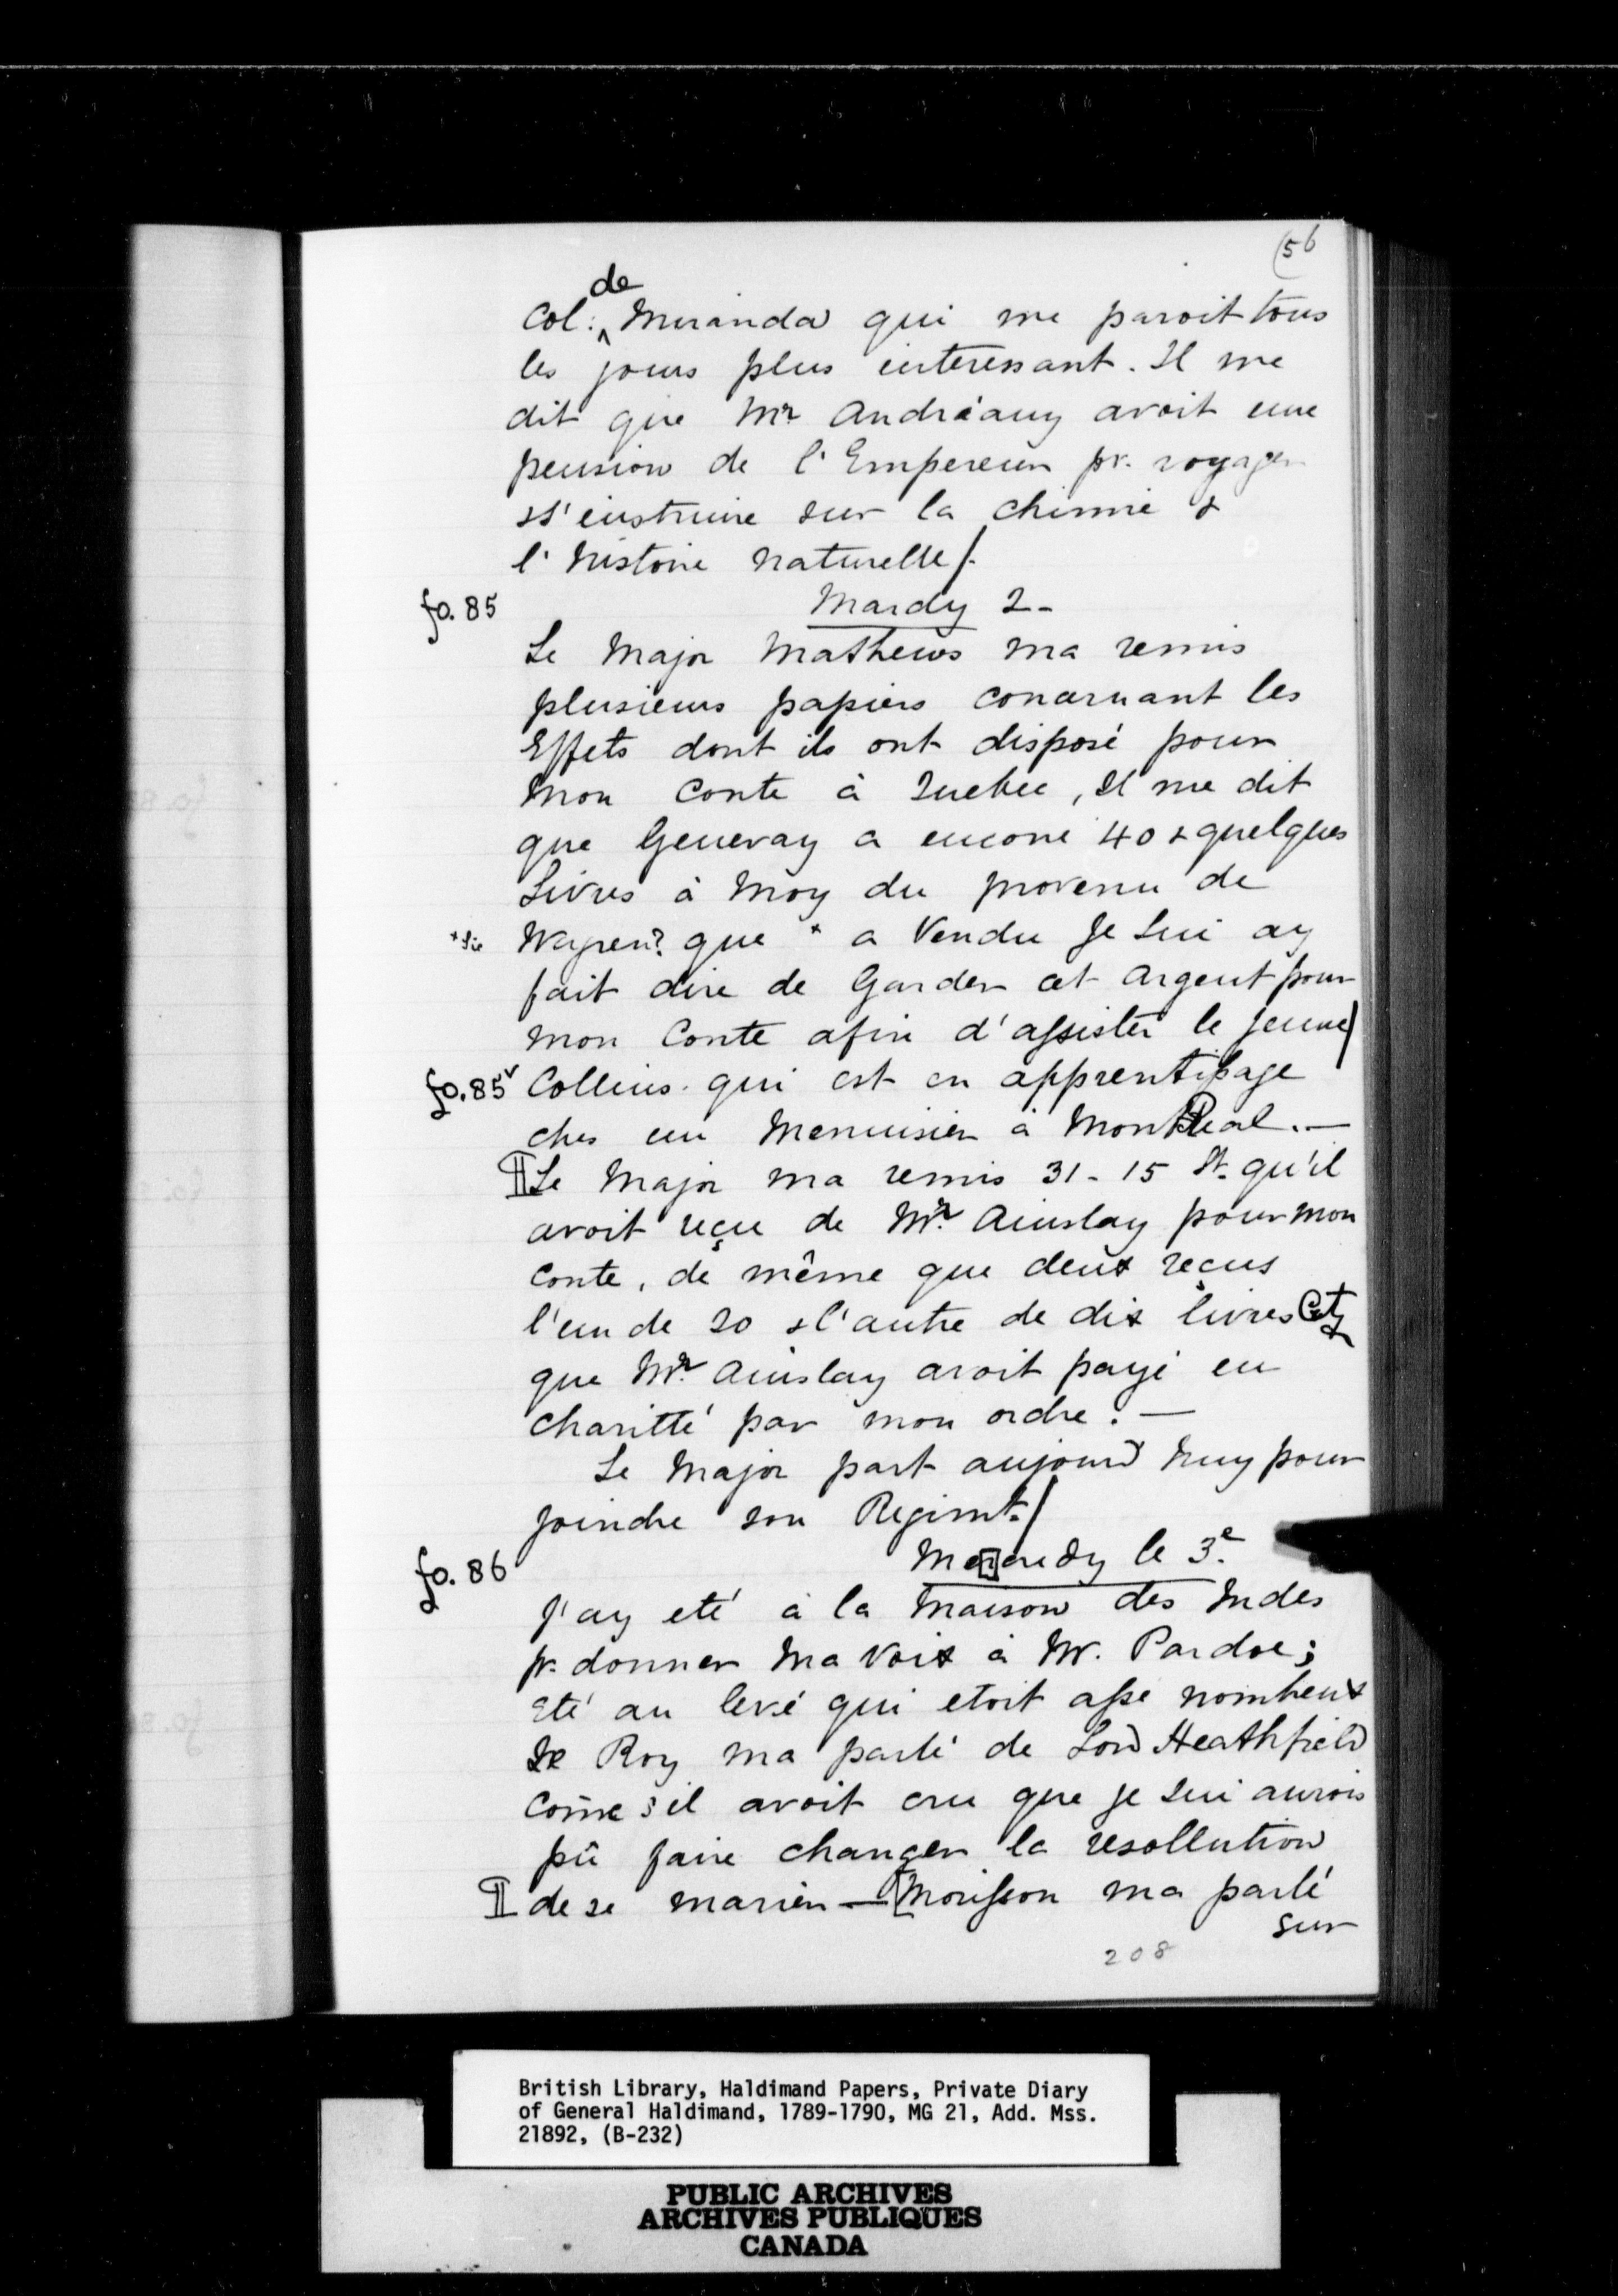 (56
Col: de Miranda qui me paroit tous
les jours plus interessant. Il me
dit que Mr Andréany avoit une
pension de l'Empereur pr. voyager
& s'instruire sur la chimie &
l'histoire naturelle/.
fo. 85
Mardy 2-
Le Major Mathews ma remis
plusieurs papiers concernant les
Effets dont ils ont disposé pour
mon Conte à Quebec, Il me dit
que Genevay a encore 40 & quelques
Livres à Moy du provenu de
*Sic que * a Vendu Je Lui ay
fait dire de Garder cet Argent pour
mon Conte afin d'assister le jeune/
fo. 85v Collins qui est en apprentisage
ches un Menuisier à MontReal.—
Le Major ma remis 31-15 St. qu'il
avoit reçu de Mr. Ainslay pour mon
Conte, de même que deux reçus
l'un de 20 & l'autre de dix livres Cty
que Mr. Ainslay avoit payé en
charitté par mon ordre.—
Le Major part aujourd huy pour
joindre son Regimt./
fo. 86
le 3e.
J'ay eté à la Maison des Indes
pr. donner Ma Voix à Mr. Pardoe;
Eté au levé qui etoit asse nombeux
Le Roy ma parlé de Lord Heathfield
Come s'il avoit cru que Je Lui aurois
pû faire changer la resollution
de se marier — [Morisson ma parlé
sur
208
British Library, Haldimand Papers, Private Diary
of General Haldimand, 1789-1790, MG 21, Add. Mss.
21892, (B-232)
PUBLIC ARCHIVES
ARCHIVES PUBLIQUES
CANADA